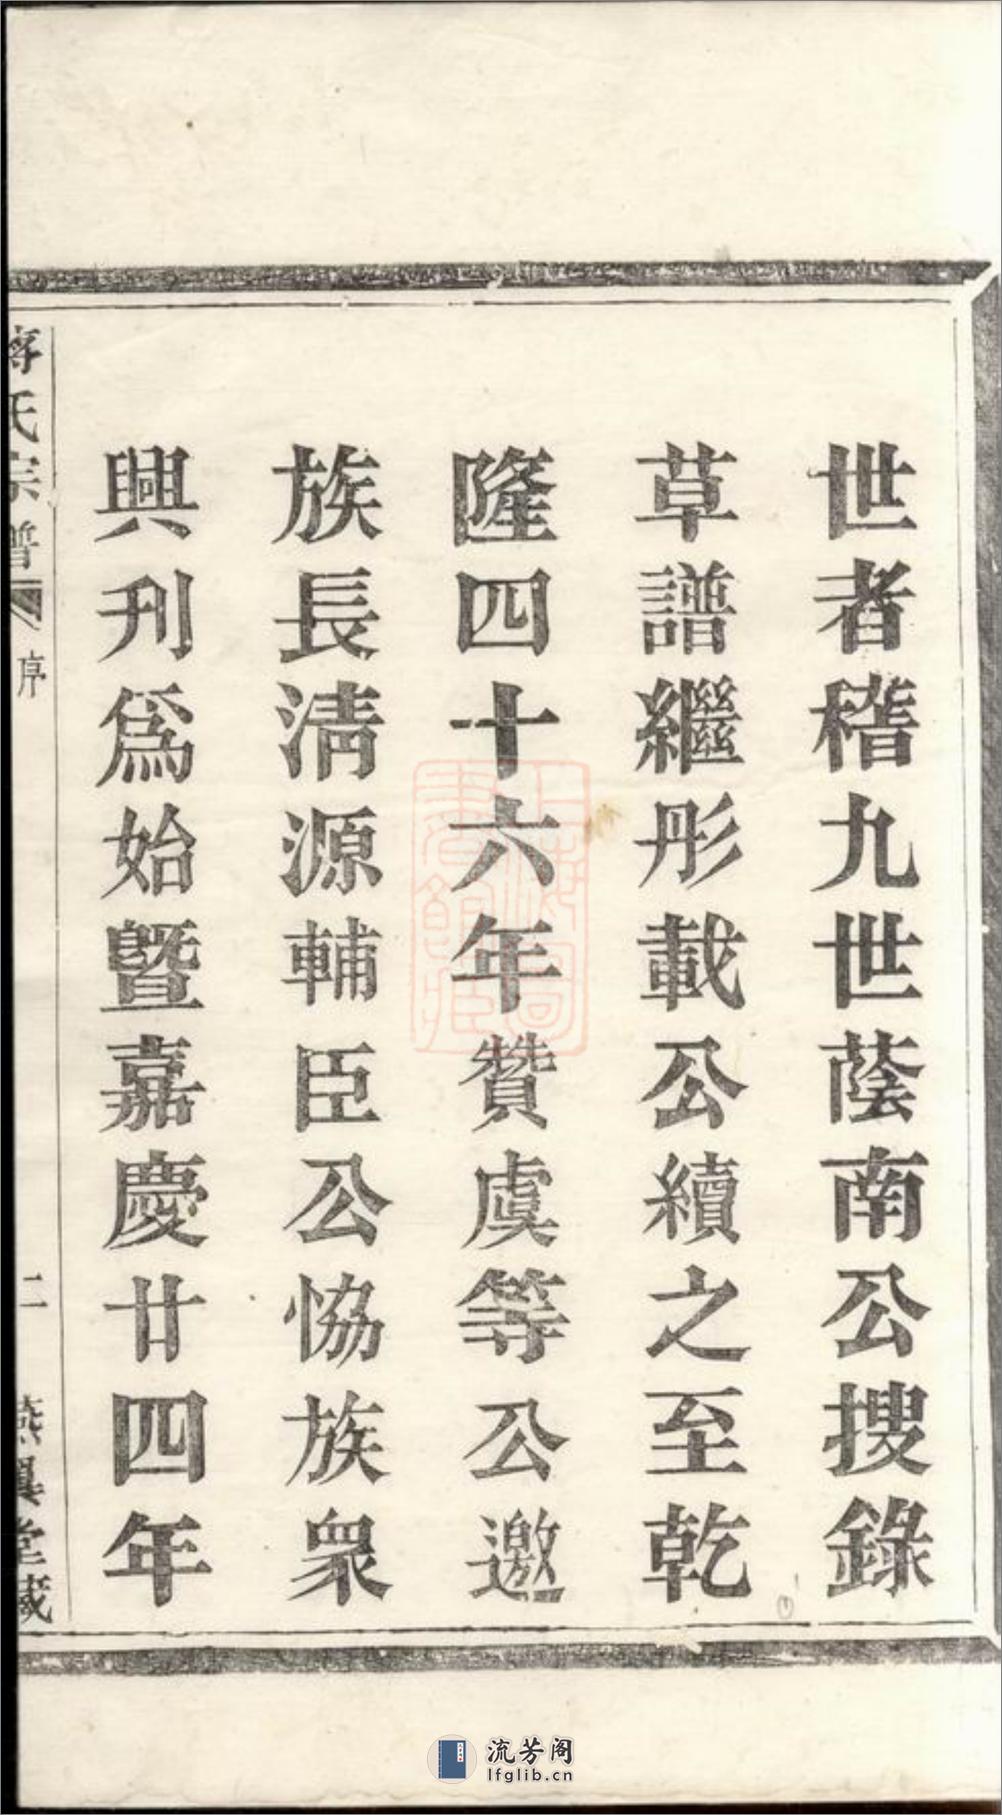 世者稽九世蔭南公搜錄
草譜繼彤載公續之至乾
隆四十六年贊虞等公邀
族長淸源輔臣公恊族衆
興刋爲始曁嘉慶廿四年
氏宗譜
序
二
燕翼堂藏
流芳阁
lfglib.cn